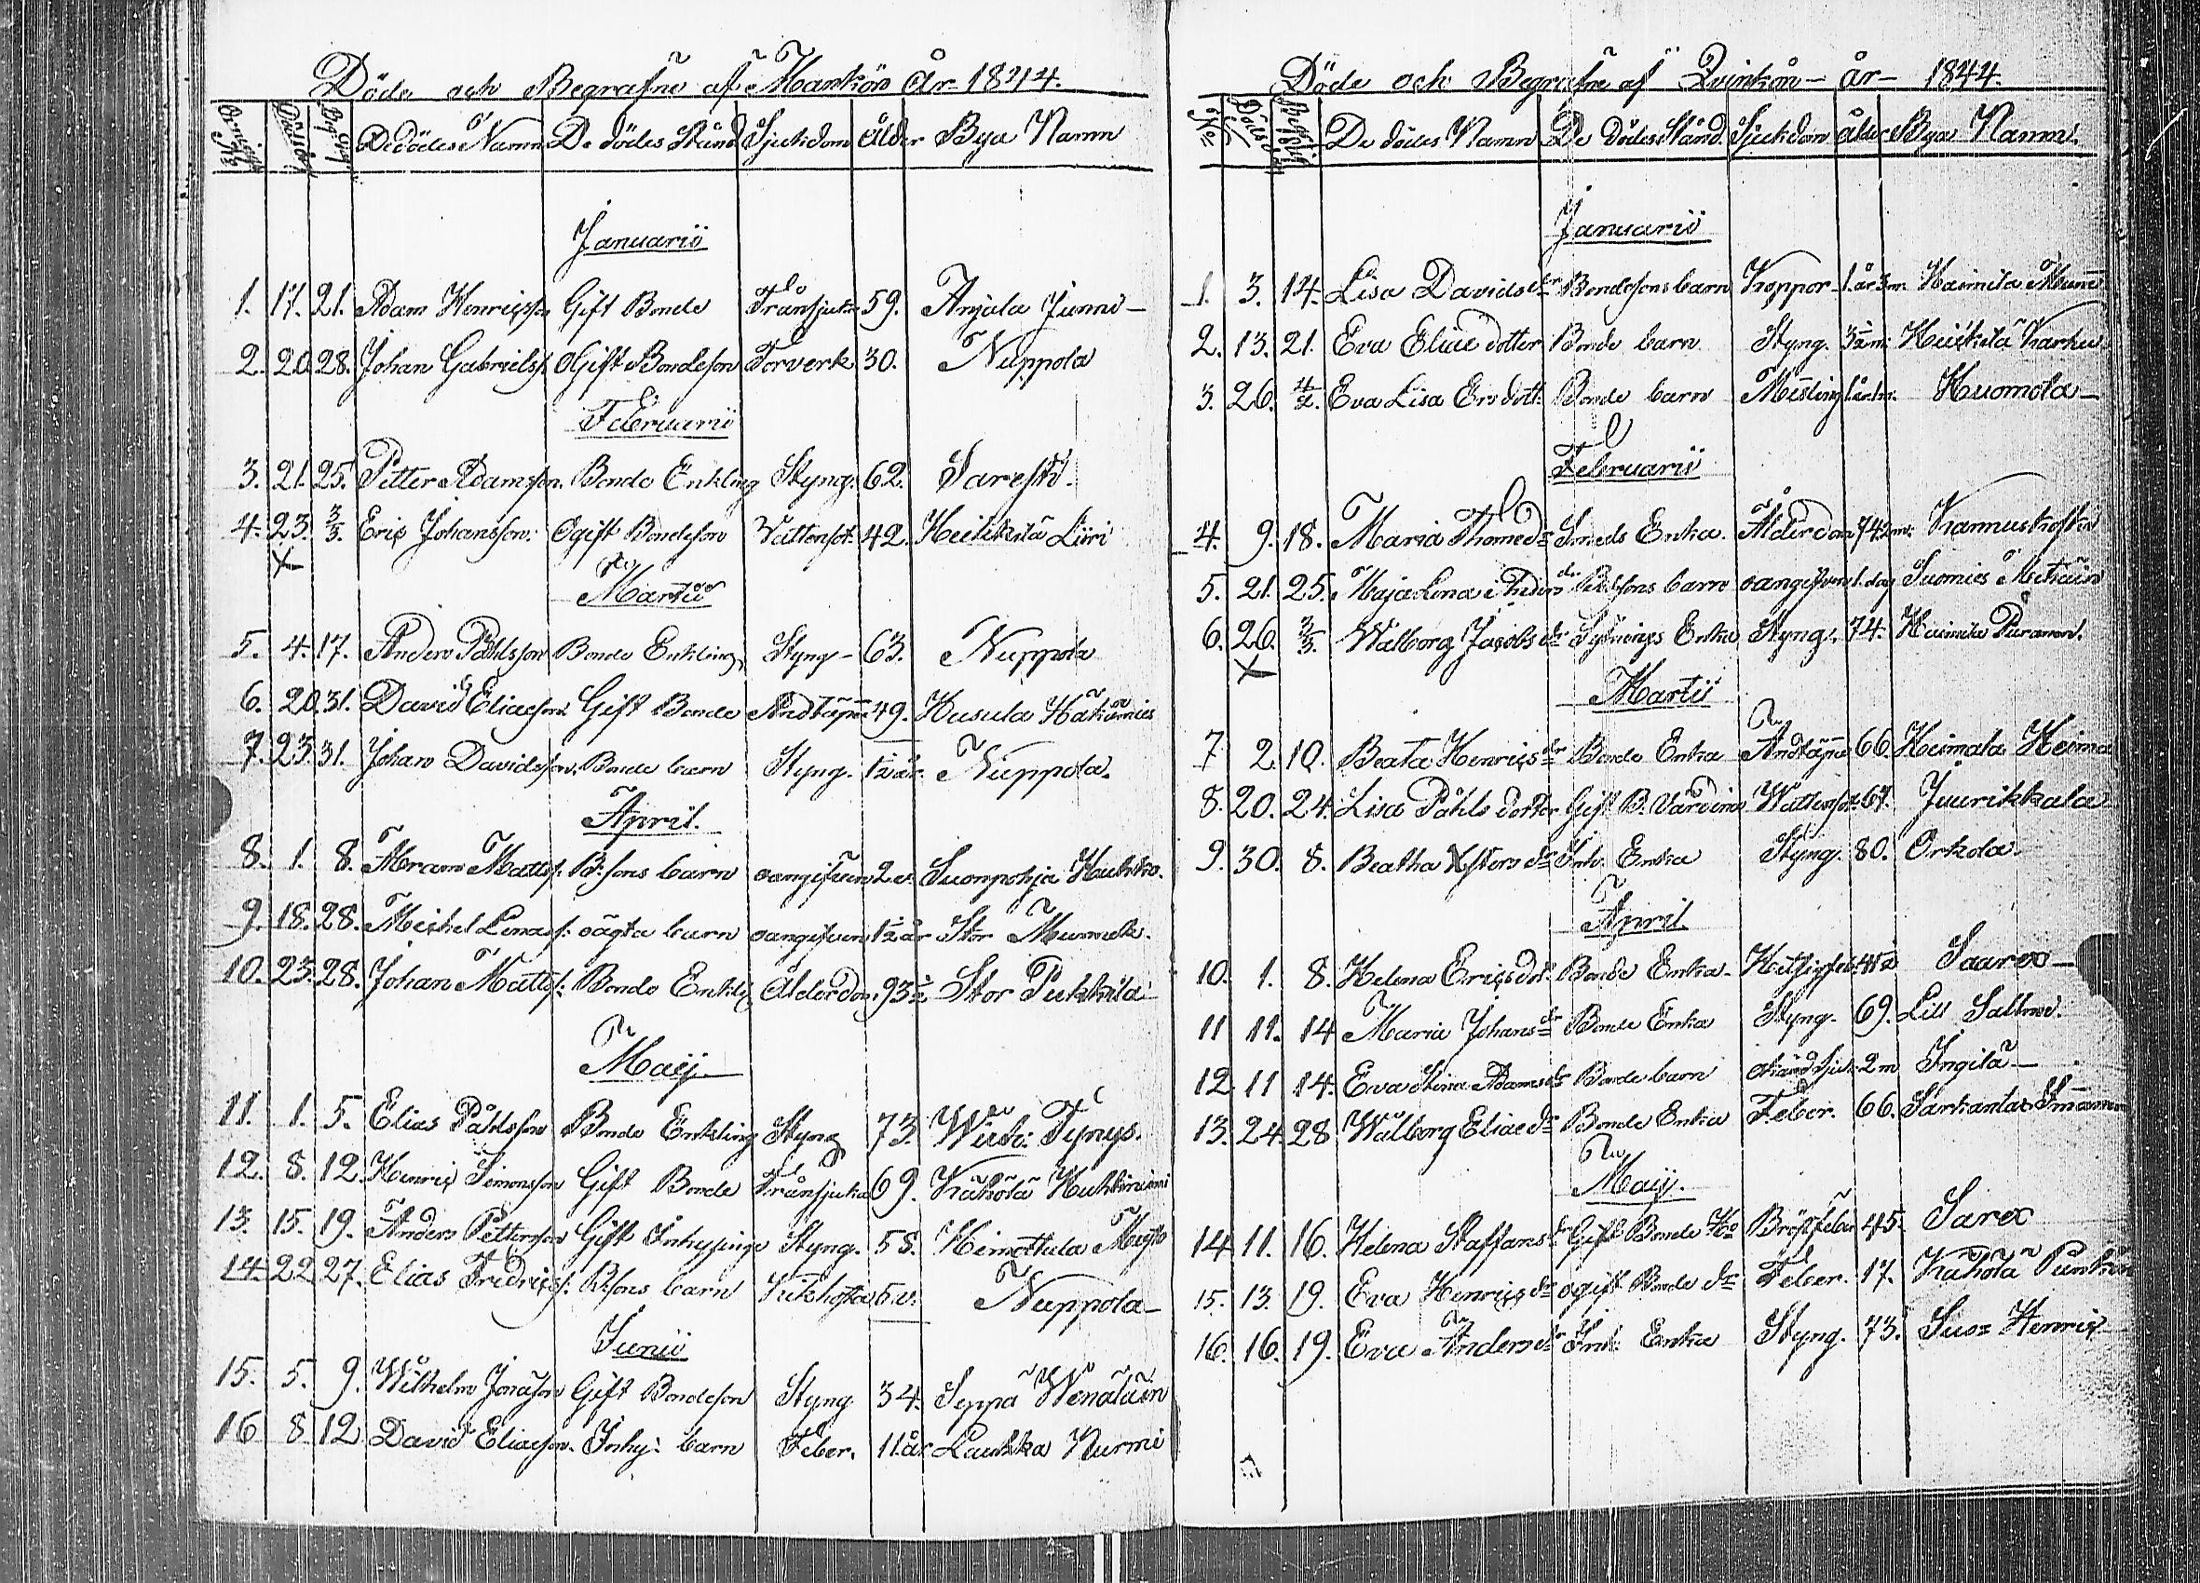 Döde och Begrafne af Mankön År 1844.
De dödes Namn De dödes Stånd Sjukdom Ålder Bya Namn
Januarii
1. 17. 21. Adam Henricsson Gift Bonde Trånsjuka 59. Anjala Junni
2. 20. 28. Johan Gabrielss. Ogift Bondeson Torverk 30. Nuppola
Februarii
3. 21. 25. Petter Adamsson. Bonde Enkling Styng. 62. Sareski
4. 23. 3/3. Eric Johansson. Ogift Bondeson Vattensot. 42. Heikkilä Liiri
Martii
5. 4. 17. Anders Påhlsson Bonde Enkling Styng 63. Nuppola
6. 20. 31. David Eliaeson. Gift Bonde Andtäppa 49. Husula
7. 23. 31. Johan Davidsson. Bonde barn Styng. 1/2 år. Nuppola.
April.
8. 1. 8. Abram Mattss. B. sons barn oangifven 2 v. Suonpohja
9. 18. 28. Michel Lenas s: oägta barn oangifven 1/2 år Stor
10. 23. 28. Johan Mattss: Bonde Enklig Ålderdom. 93 1/2 Stor Pukkila
Maij
11. 1. 5. Elias Påhlsson Bonde Enkling Styng 73. Tynys.
12. 8. 12. Henric Simonsson Gift Bonde Trånsjuka 69. Kähölä
13. 15. 19. Anders Pettersson Gift Inhysing Styng. 58. Himottula
14. 22 27. Elias Fridricss: B. sons barn Kikhosta 5 v. Nuppola
Junii
15. 5. 9. Wilhelm Gift Bondeson Styng 34. Seppä Wenäläin
16 8. 12. David Eliaeson. Inhy: barn Feber. 11 år Laukka Nurmi
Döde och Begrafne af Qvinkön år 1844.
No. De dödes Namn De Dödes Stånd Sjukdom Ålder Bya Namn.
Januarii
1. 3. 14. Lisa Davidsdr Bondesons barn Koppor 1. år 3 m. Haimila
2. 13. 21. Eva Eliae dotter Bonde barn Styng. Heikkilä Karhu
3. 26. 4/2. Eva Lisa Ersdott. Bonde barn Mesling Huomola
Februarii
4. 9. 18. Maria Thomedr Smeds Enka. Ålderdom 74 Kannuskoski
5. 21. 25. Maja Lena Anders dr barn oangifven 1. dag Suomies
6. 26. 3/3. Walborg Jacobsdr Enka Styng. 74. Haimila Puranen.
Martii
7 2. 10. Beata Henricsdr Bonde Enka Andtäppa 66. Heimala Heima
8. 20. 24. Lisa Påhls dotter Gift B. Värdinna Wattusot 67. Juurikkala
9. 30. 8. Beatha Inh. Enka Styng. 80. Orkola
April
10. 1. 8. Helena Ericsdot. Bonde Enka Saarex
11 11. 14 Maria Johansdr Bonde Enka Styng. 69. Lill
12 11 14. Eva Stina Adamsdr Bonde barn okänd sjuk. 2 m Ingilä
13. 24. 28 Walborg Eliaedr Bonde Enka Feber. 66. Sarkanta
Maij.
14 11. 16. Helena Staffansdr Gift Bonde Ho Bröstfeber 45. Sarex
15. 13. 19. Eva Henricsdr ogift Bonde dr Feber. 17. Kähölä
16. 16. 19. Eva Andersdr Inh. Enka Styng. 73. Henric